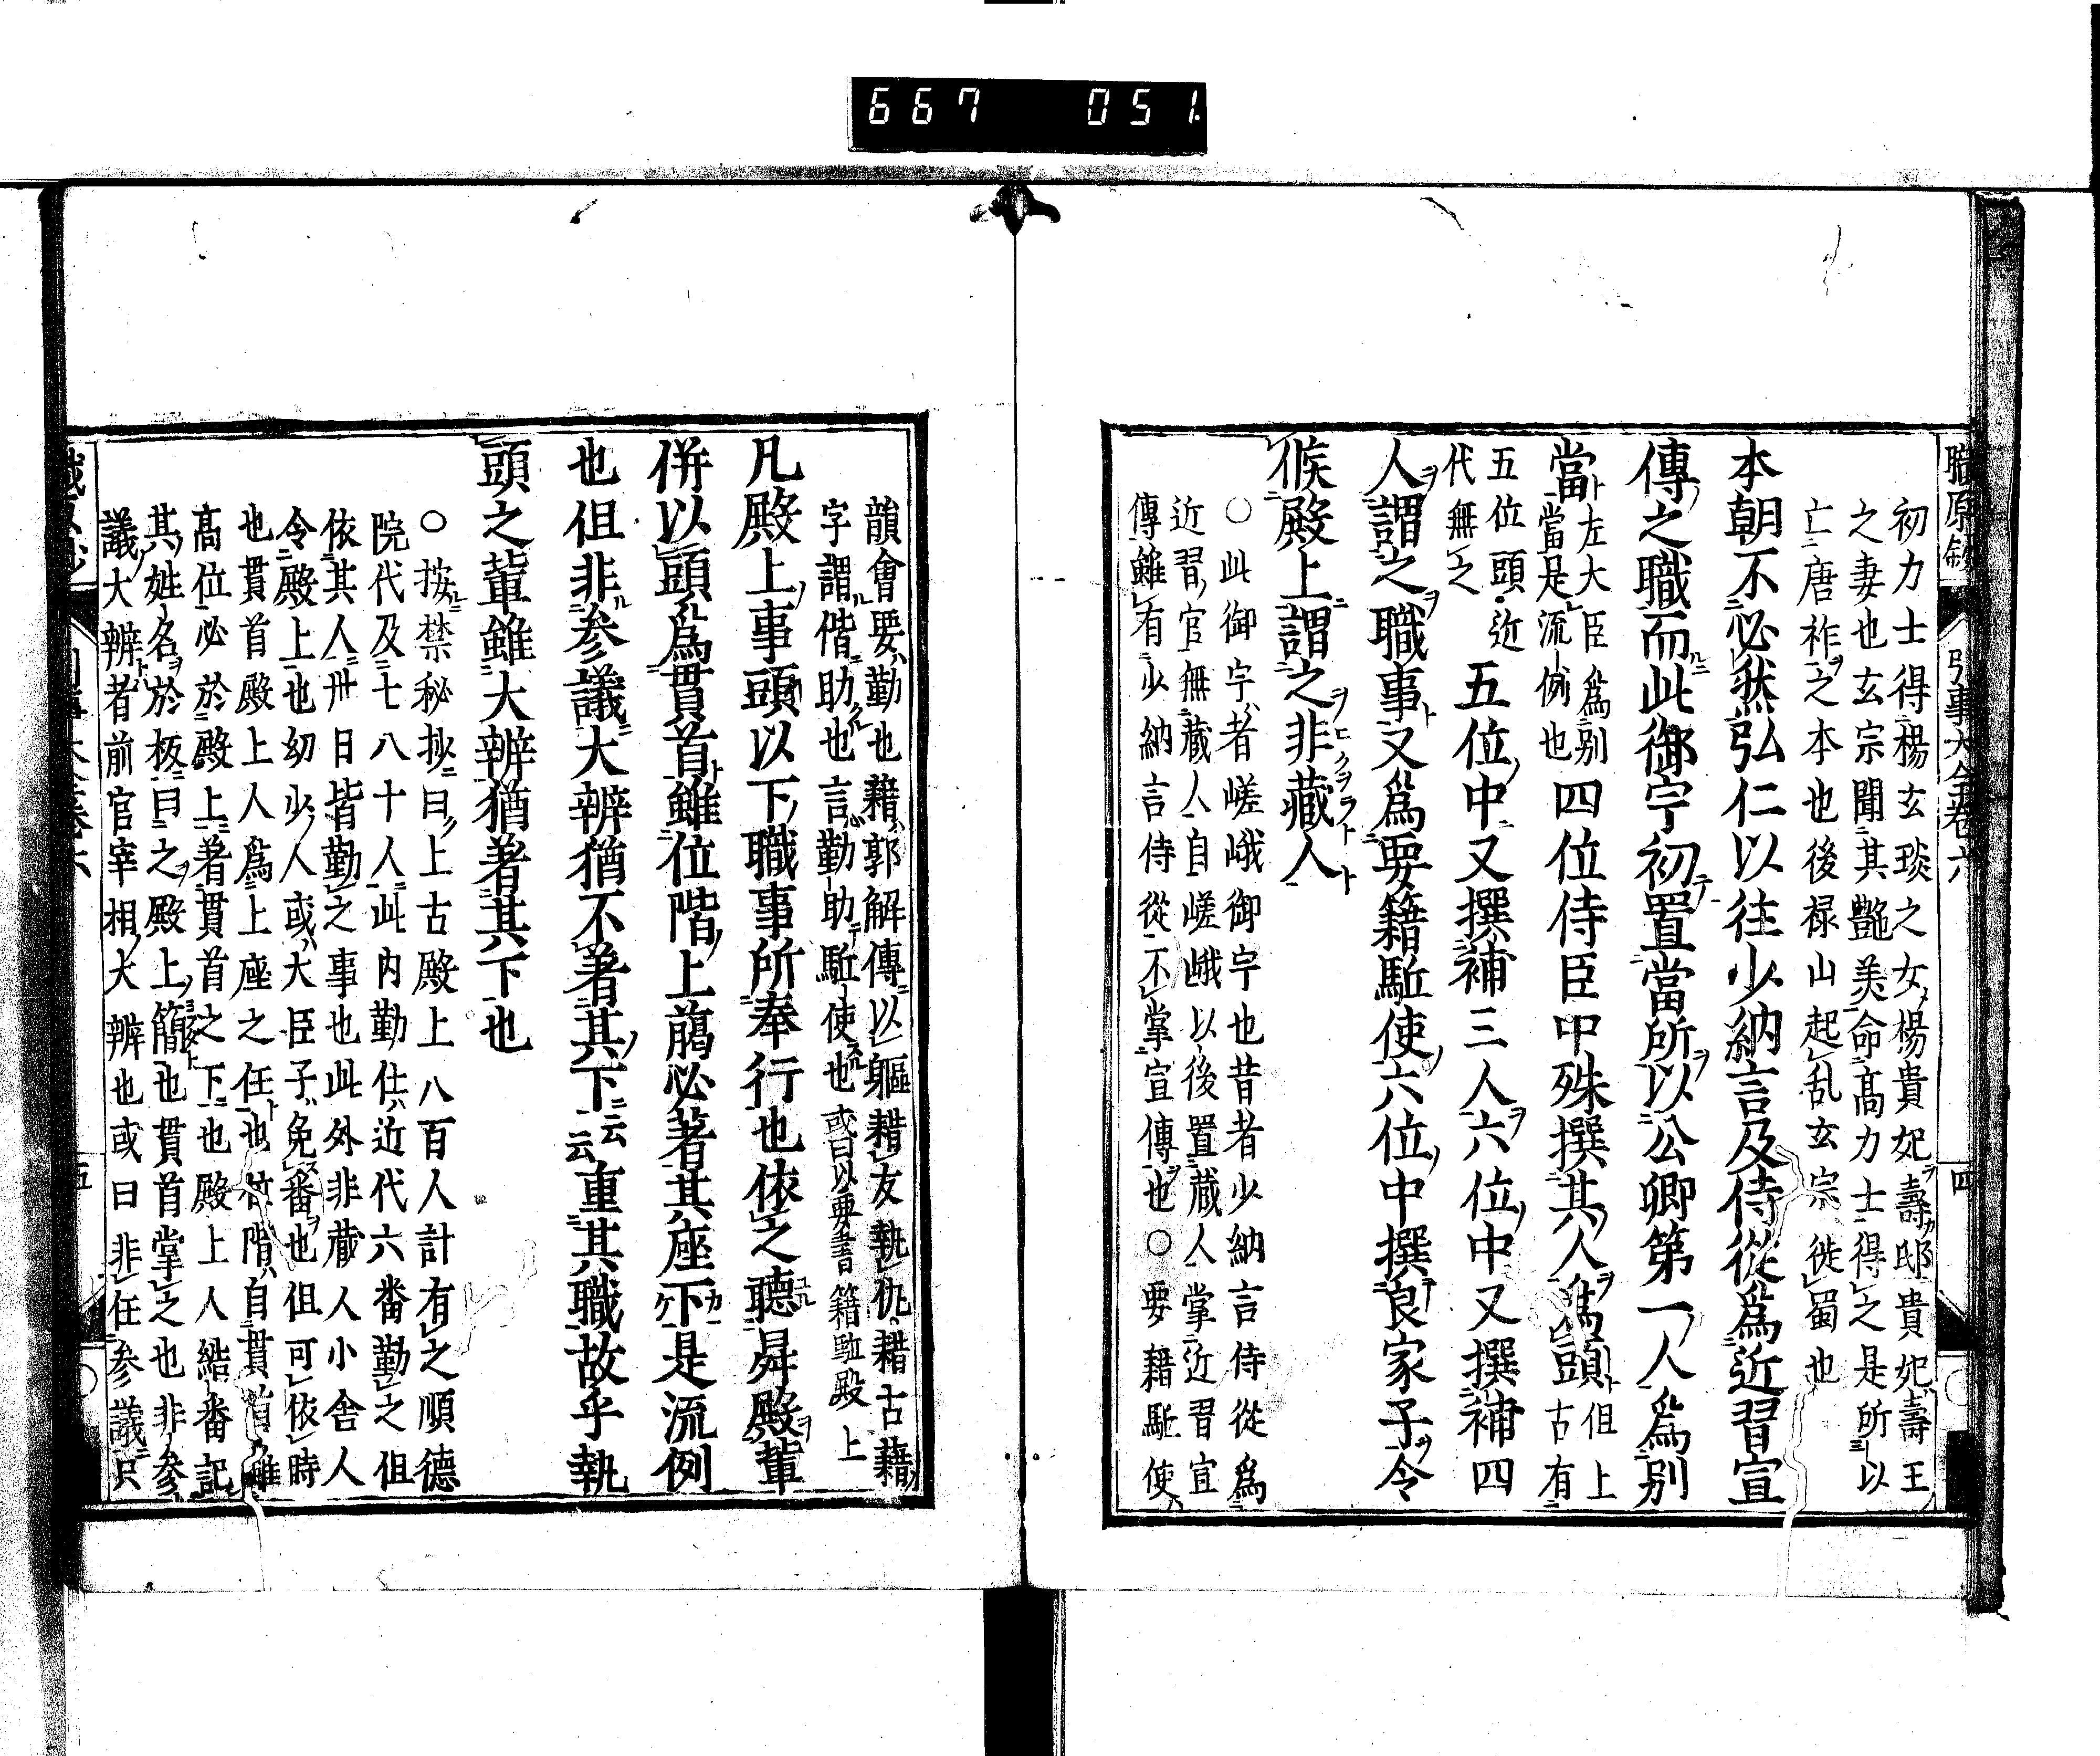 667 051
職原鈔 引事大全卷六 四
初力士得楊玄琰之女楊貴妃壽邸貴妃壽王
之妻也玄宗聞其艶美命髙力士得之是所以
亡唐祚之本也後禄山起乱玄宗徙蜀也
本朝不必然弘仁以往少納言及侍從爲近習宣
傳之職而此御宇初置當所以公卿第一人爲別
當左大臣爲别當是流例也四位侍臣中殊撰其人爲頭但上古有
五位頭近代無之五位中又撰補三人六位中又撰補四
人謂之職事又爲要籍駈使六位中撰良家子令
候殿上謂之非蔵人
○此御宇者嵯峨御宇也昔者少納言侍從爲
近習官無蔵人自嵯峨以後置蔵人掌近習宣
傳雖有少納言侍從不掌宣傳也○要籍駈使
韻會要勤也籍郭解傳以軀耤友執仇耤古籍
字謂偕助也言勤助駈使也或曰以要書籍駈殿上
凡殿上事頭以下職事所奉行也依之聴昇殿輩
併以頭爲貫首雖位階上﨟必著其座下是流例
也但非参議大辨猶不著其下云云重其職故乎執
頭之輩雖大辨猶著其下也
○按禁秘抄曰上古殿上八百人計有之順德
院代及七八十人此内勤仕近代六番勤之但
依其人卅日皆勤之事也此外非蔵人小舎人
令殿上也幼少人或大臣子免番也但可依時
也貫首殿上人爲上座之任也位階自貫首雖
髙位必於殿上著貫首之下也殿上人結番記
其姓名於板曰之殿上簡也貫首掌之也非参
議大辨者前官宰相大辨也或曰非任参議只
五